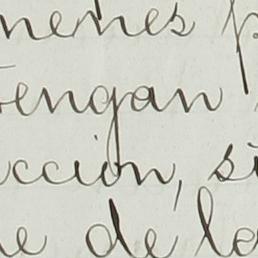 nenes p
tengan
ccion, si
e de la